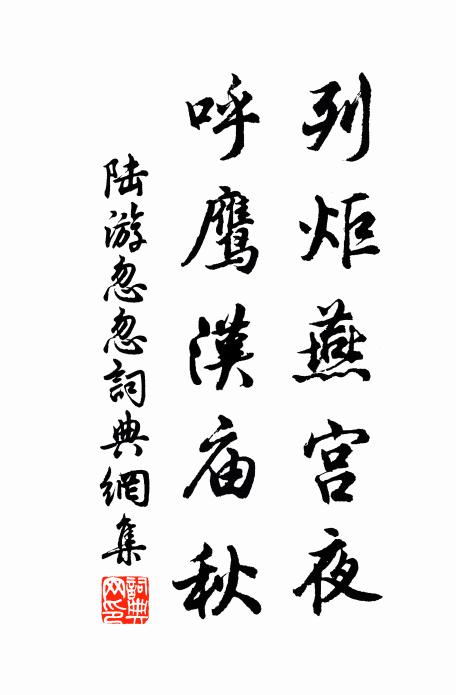 列炬燕宫夜
呼鹰漢庙秋
陆游忽忽詞典網集
詞典網印